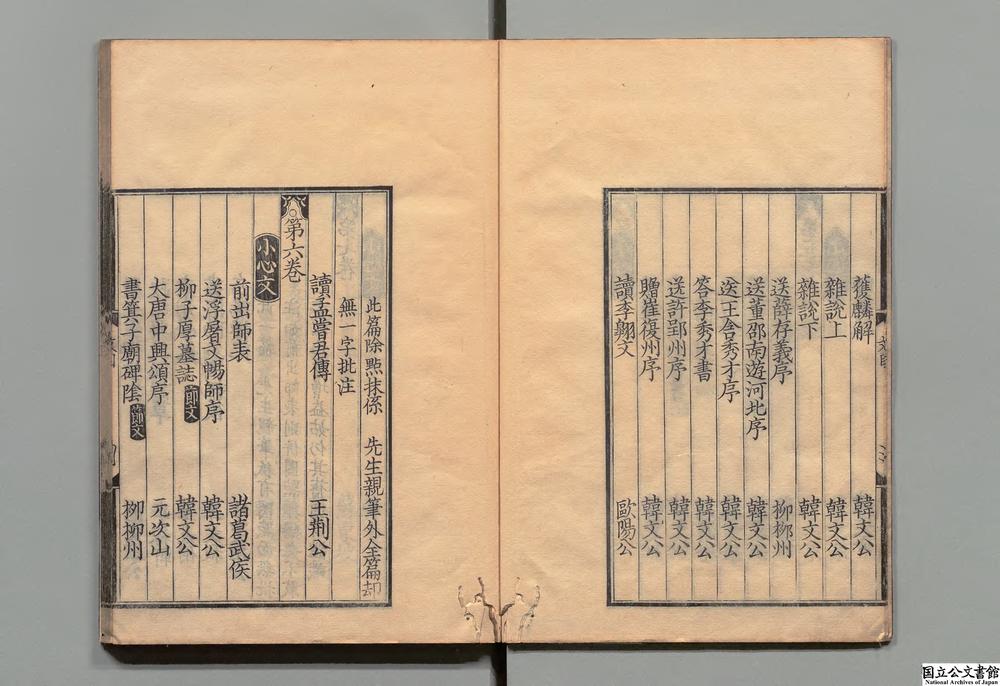 獲麟解 韓文公
雜說上 韓文公
雜說下 韓文公
送薛存義序 柳柳州
送董邵南遊河北序 韓文公
送王含秀才序 韓文公
答李秀才書 韓文公
送許郢州序 韓文公
贈崔復州序 韓文公
讀李翺文 歐陽公
此篇除點抹係 先生親筆外全篇却
無一字批注
讀孟嘗君傳 王荊公
第六卷
小心文
前出師表 諸葛武侯
送浮屠文暢師序 韓文公
柳子厚墓誌 節文 韓文公
大唐中興頌序 元次山
書箕子廟碑陰 節文 柳柳州
国立公文書館
National Archives of Japan